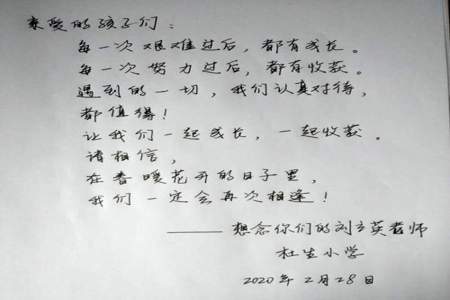 亲爱的孩子们：
每一次艰难过后，都有成长。
每一次努力过后，都有收获。
遇到的一切，我们认真对待，
都值得！
让我们一起成长，一起收获。
请相信，
在春暖花开的日子里，
我们一定会再次相逢！
——想念你们的刘立英老师
杜生小学
2020年2月28日